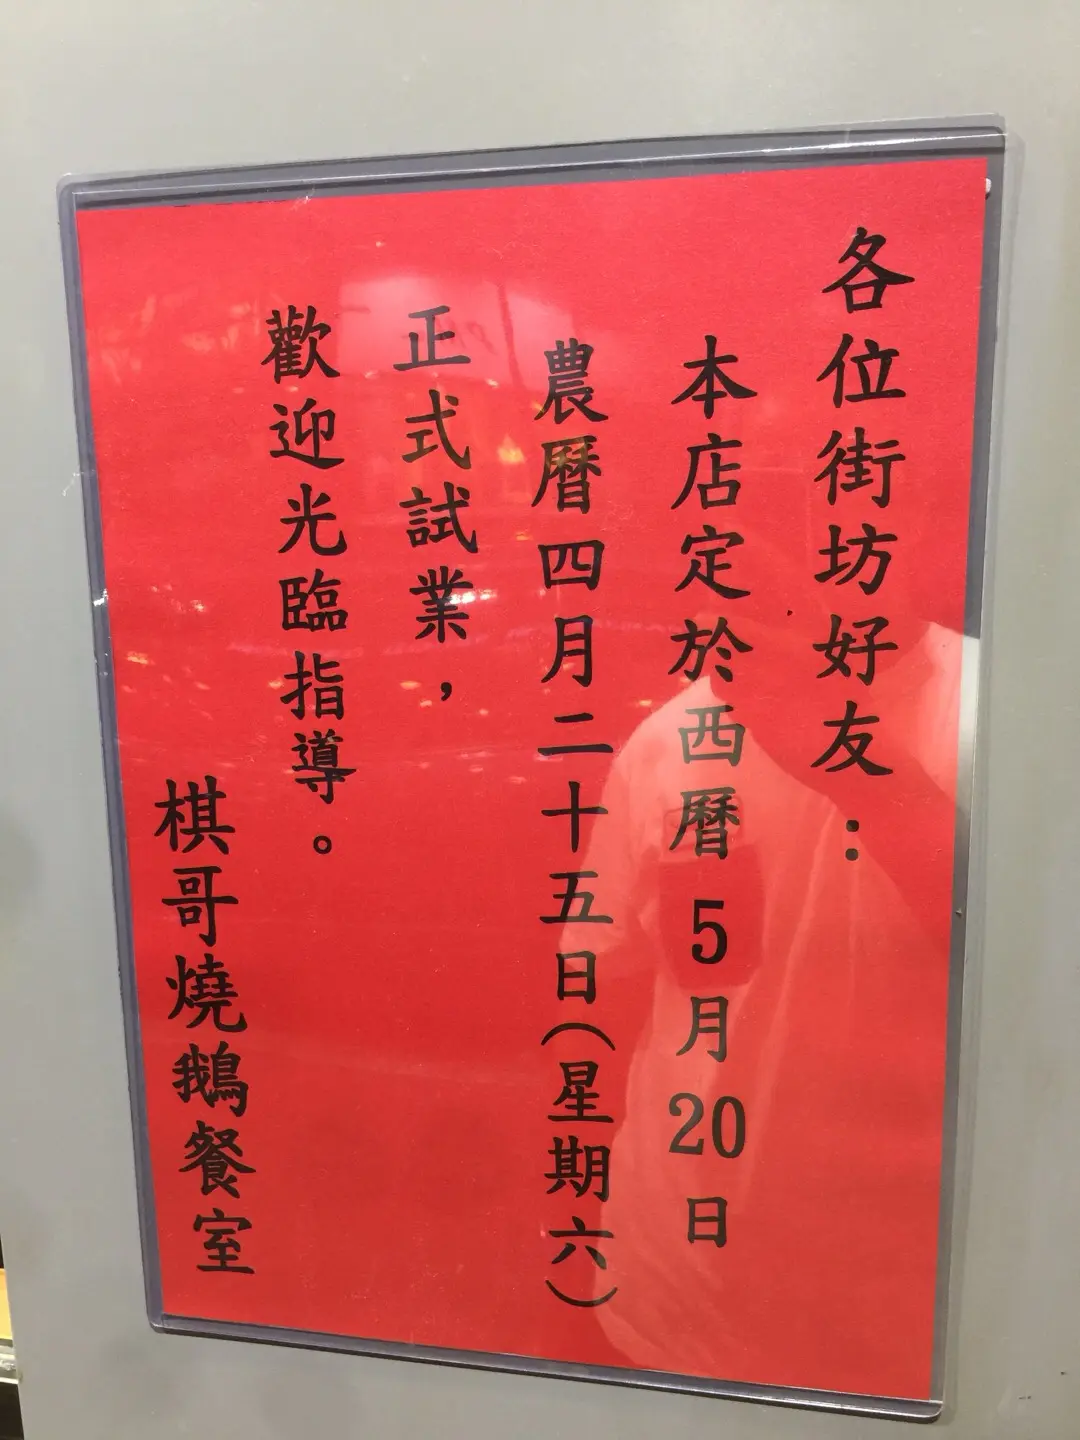 各位街坊好友：
本店定於西曆5月20日
農曆四月二十五日（星期六）
正式試業，
歡迎光臨指導。
棋哥燒鵝餐室